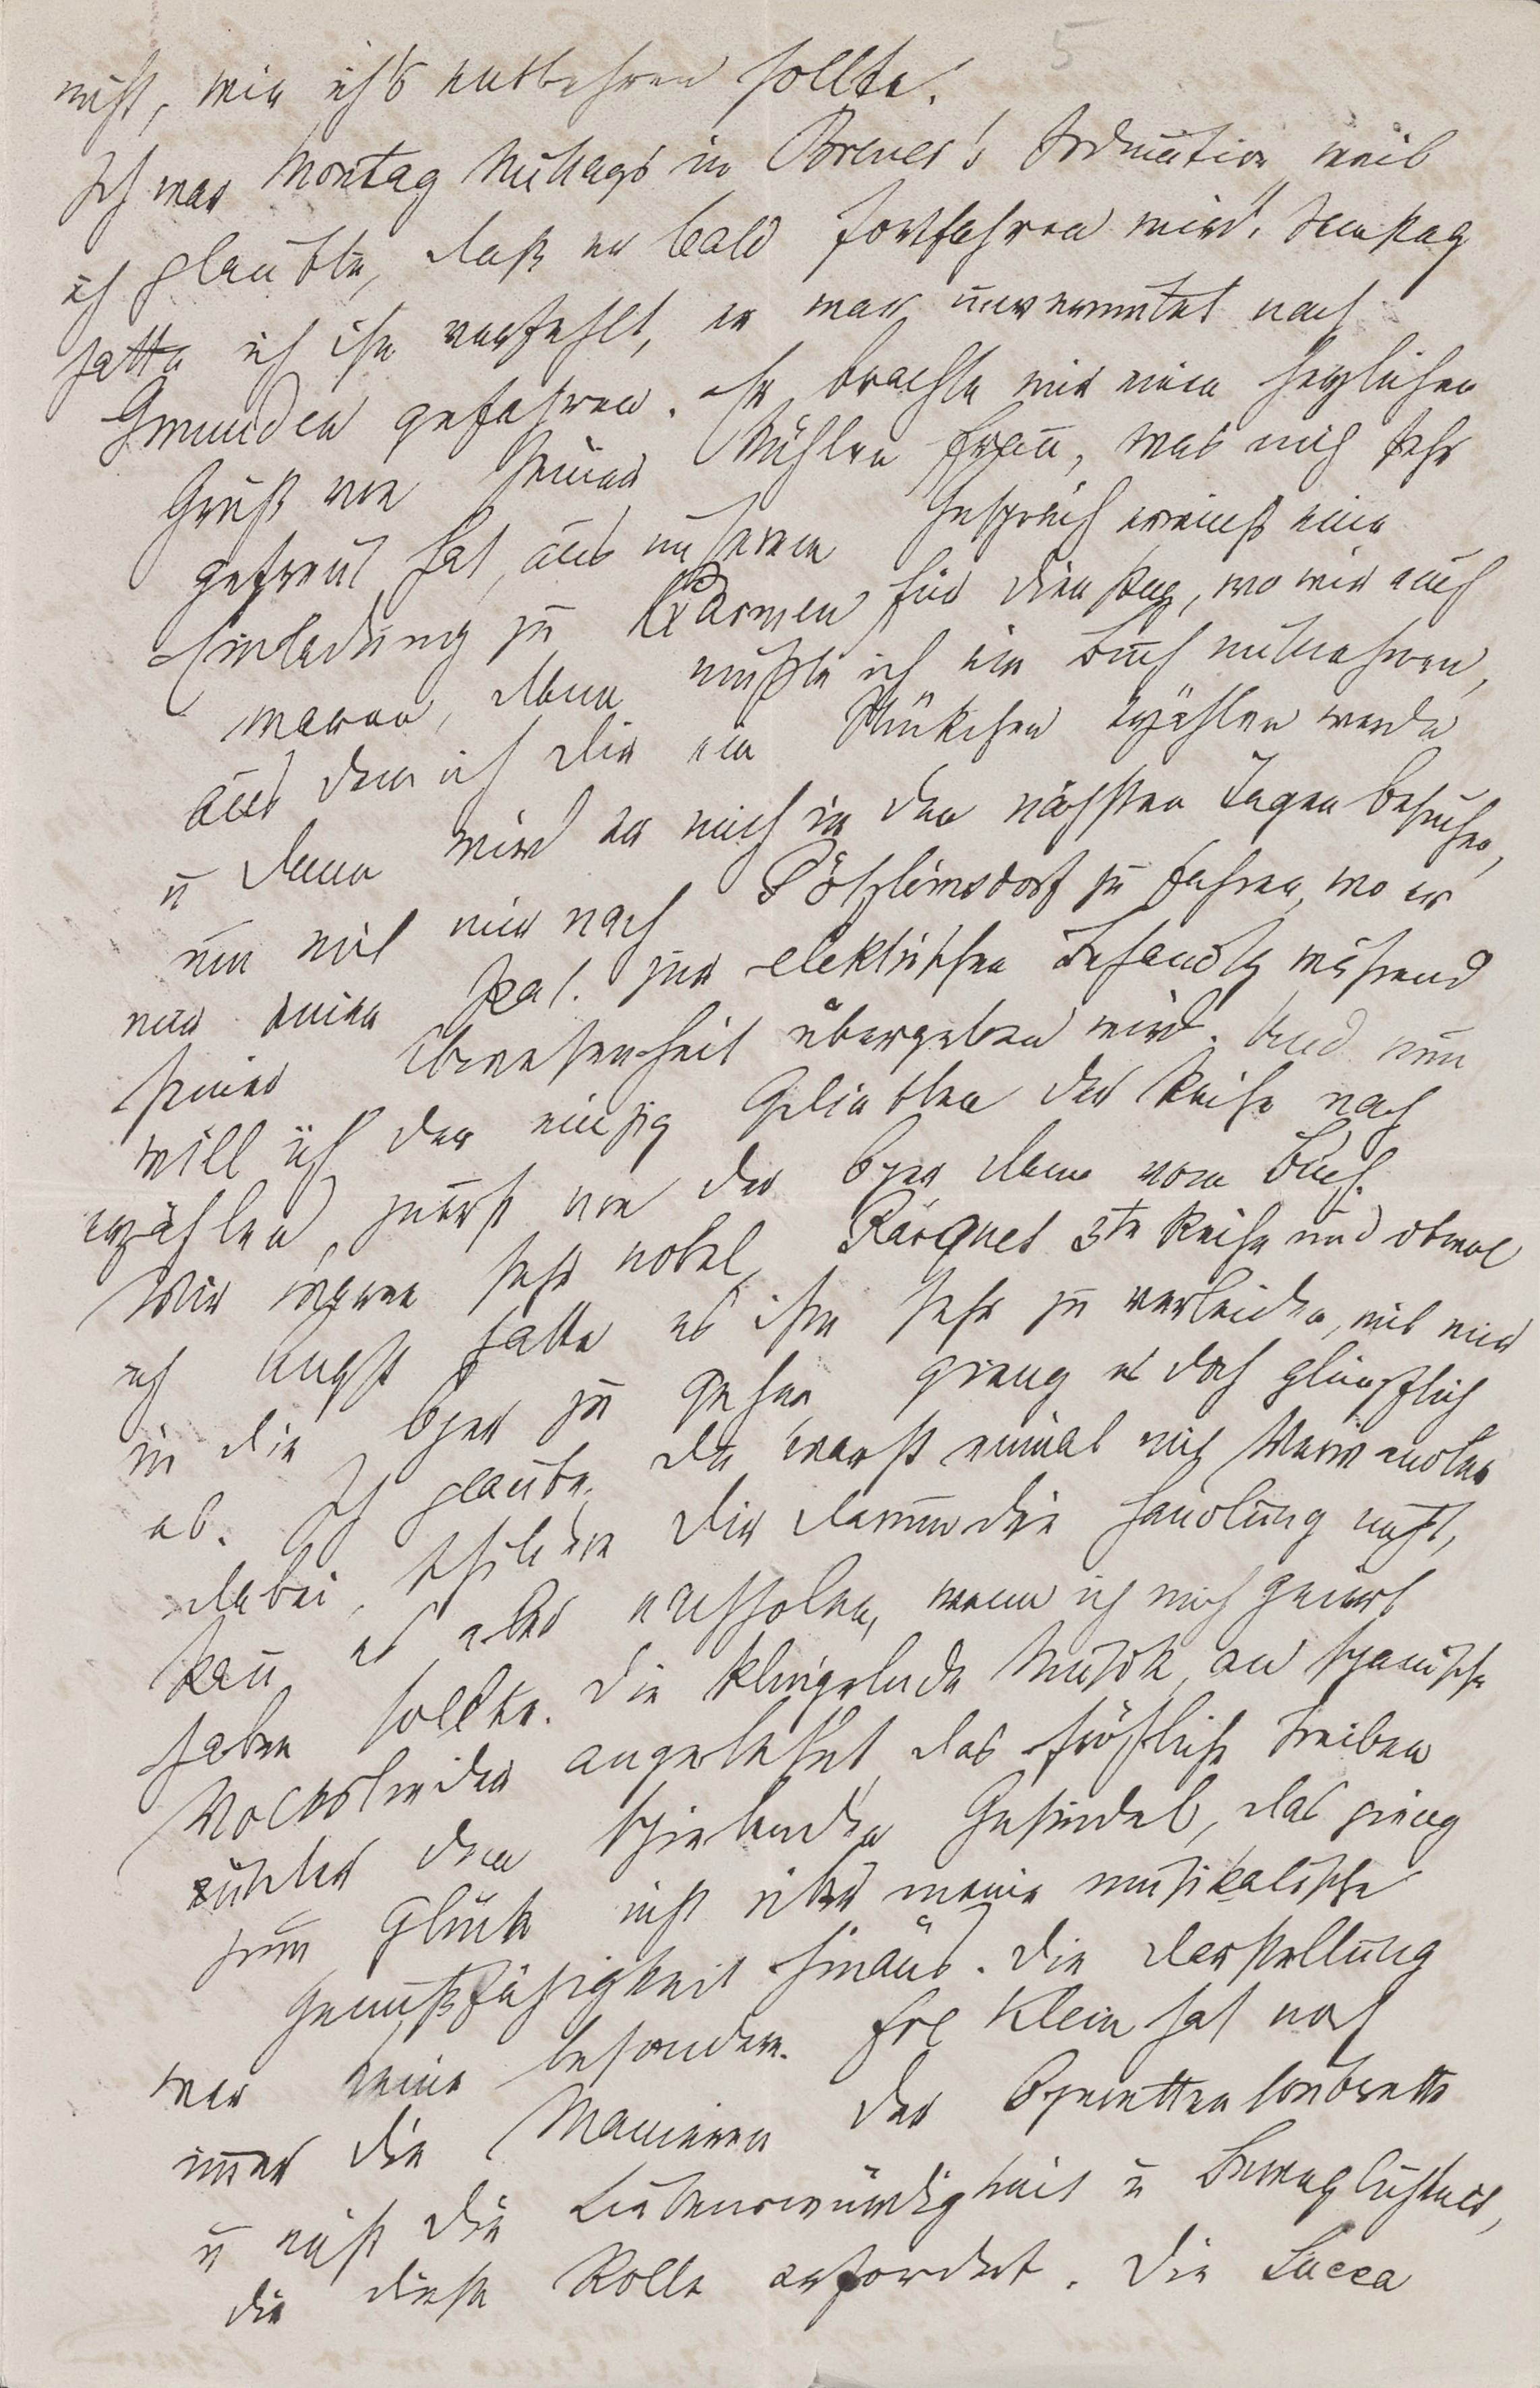 5
nicht, wie ich's entbehren sollte.
Ich war Montag Mittags in Breuer's Ordination weil
ich glaubte, daß er bald fortfahren wird. Samstag
hatte ich ihn verfehlt, er war unvermutet nach
Gmunden gefahren. Er brachte mir einen herzlichen
Gruß von seiner Frau, was mich sehr
gefreut hat, aus unserem Gespräch erwuchs eine
Einladung zu Carmen für Dienstag, wo wir auch
waren, dann mußte ich ein Buch mitnehmen,
aus dem ich Dir ein Stückchen erzählen werde
u dann wird er mich in den nächsten Tagen besuchen,
um mit mir nach Pötzleinsdorf zu fahren, wo er
mir einen Pat. zur elektrischen Behandlg während
seiner Abwesenheit übergeben wird. Und nun
will ich der einzig Geliebten der Reihe nach
erzählen, zuerst von der Oper dann vom Buch.
Wir waren sehr nobel, Parquet 3te Reihe und obwol
ich Angst hatte es ihm sehr zu verleiden, mit mir
in die Oper zu gehen gieng es doch glimpflich
ab. Ich glaube, Du warst einmal mit Verwandten
dabei, schildere Dir darum die Handlung nicht,
kann es aber nachholen, wenn ich mich geirrt
haben sollte. Die klingelnde Musik, an spanische
Volkslieder angelehnt, das fröhliche Treiben
unter dem Gesindel, das gieng
zum Glück nicht über meine musikalische
Genußfähigkeit hinaus. Die Darstellung
war keine besondere. Frl Klein hat noch
immer die Manieren der Operettensoubrette
u nicht die Liebenswürdigkeit u Beweglichkeit,
die diese Rolle erfordert. Die Lucca